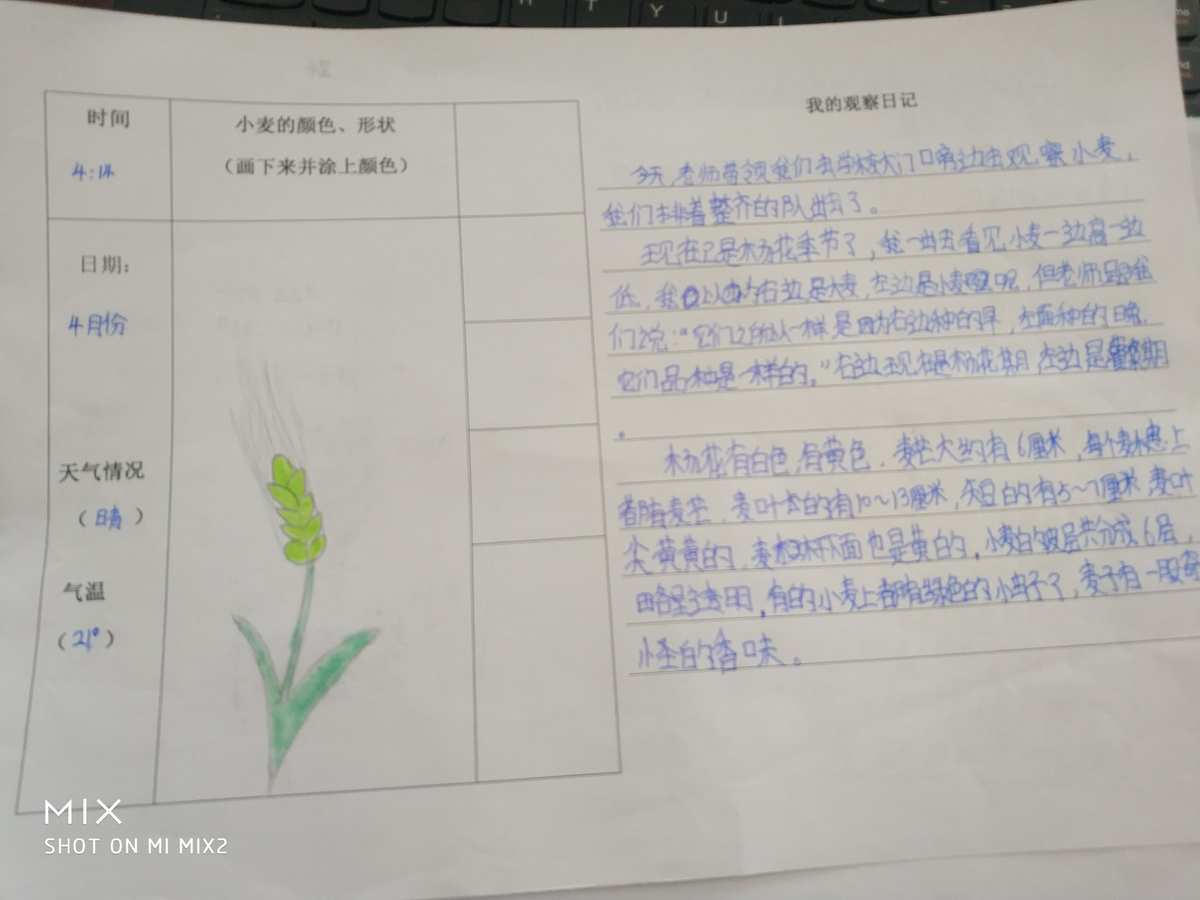 时间
4:14
小麦的颜色、形状
（画下来并涂上颜色）
日期：
4月份
天气情况
（晴）
气温
（21°）
我的观察日记
今天，老师带领我们去学校大门口旁边去观察小麦，
我们排着整齐的队出去了。
现在已是杨花季节了，我一出去看见小麦一边高一边
低，我以为右边是大麦，左边是小麦呢，但老师跟我
们说："它们之所以不一样是因为右边种的早，左面种的晚，
它们品种是一样的。"右边现在是杨花期 左边是期
。
杨花有白色，有黄色，麦芒大约有6厘米，每个麦穗上
都有麦芒，麦叶长的有10～13厘米，短的有5～7厘米 麦叶
尖黄黄的，麦下面也是黄的，小麦的被层共分成6层，
有的小麦上都有绿色的小虫子了，麦子有一股奇
怪的香味。
MIX
SHOT ON MI MIX2
H T Y U